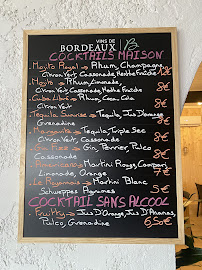 VINS DE
BORDEAUX
COCKTAILS MAISON
Mojito Royal → Rhum, Champagne
Citron Vert, Cassonade, Menthe Fraîche 12€
Mojito → Rhum, Limonade,
Citron Vert, Cassonade, Menthe Fraîche 8€
Cuba Libre → Rhum, Coca Cola
Citron Vert 8€
Tequila Sunrise → Tequila, Jus D'Orange
Grenadine
Margarita → Tequila, Triple Sec
Citron Vert, Cassonade 8€
Gin Fizz → Gin, Perrier, Pulco
Cassonade 8€
Americano → Martini Rouge, Campari
Limonade, Orange 7€
Martini Blanc
Schweppes Agrumes 5€
COCKTAIL SANS ALCOOL
Fruitty → Jus D'Orange, Jus D'Ananas,
Pulco, Grenadine 6,50€